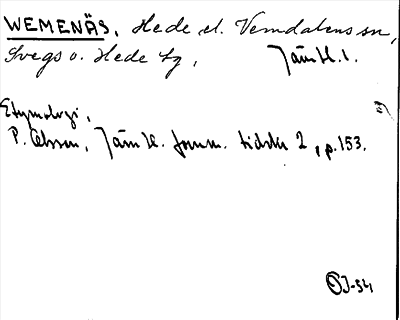 WEMENÄS, Hede el. Vemdalens sn,
Svegs o. Hede tg, Jämtl. l.
Etymologi,
P. Olsson, Jämtl. fornm. tidskr 2, p. 153.
OJ-54